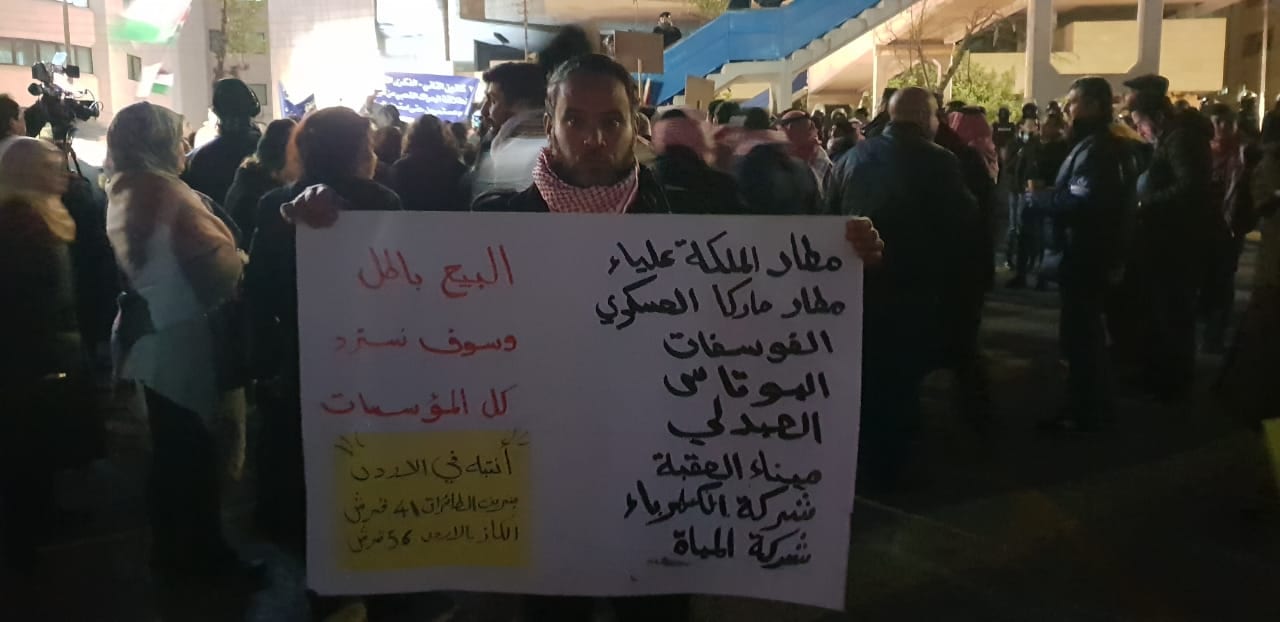 مطار الملكة علياء
مطار ماركا العسكري
الفوسفات
البوتاس
العبدلي
ميناء العقبة
شركة الكهرباء
شركة المياة
البيع باطل
وسوف نسترد
كل المؤسسات
أنتبه في الاردن
الطائرات 41 قرش
56 قرش